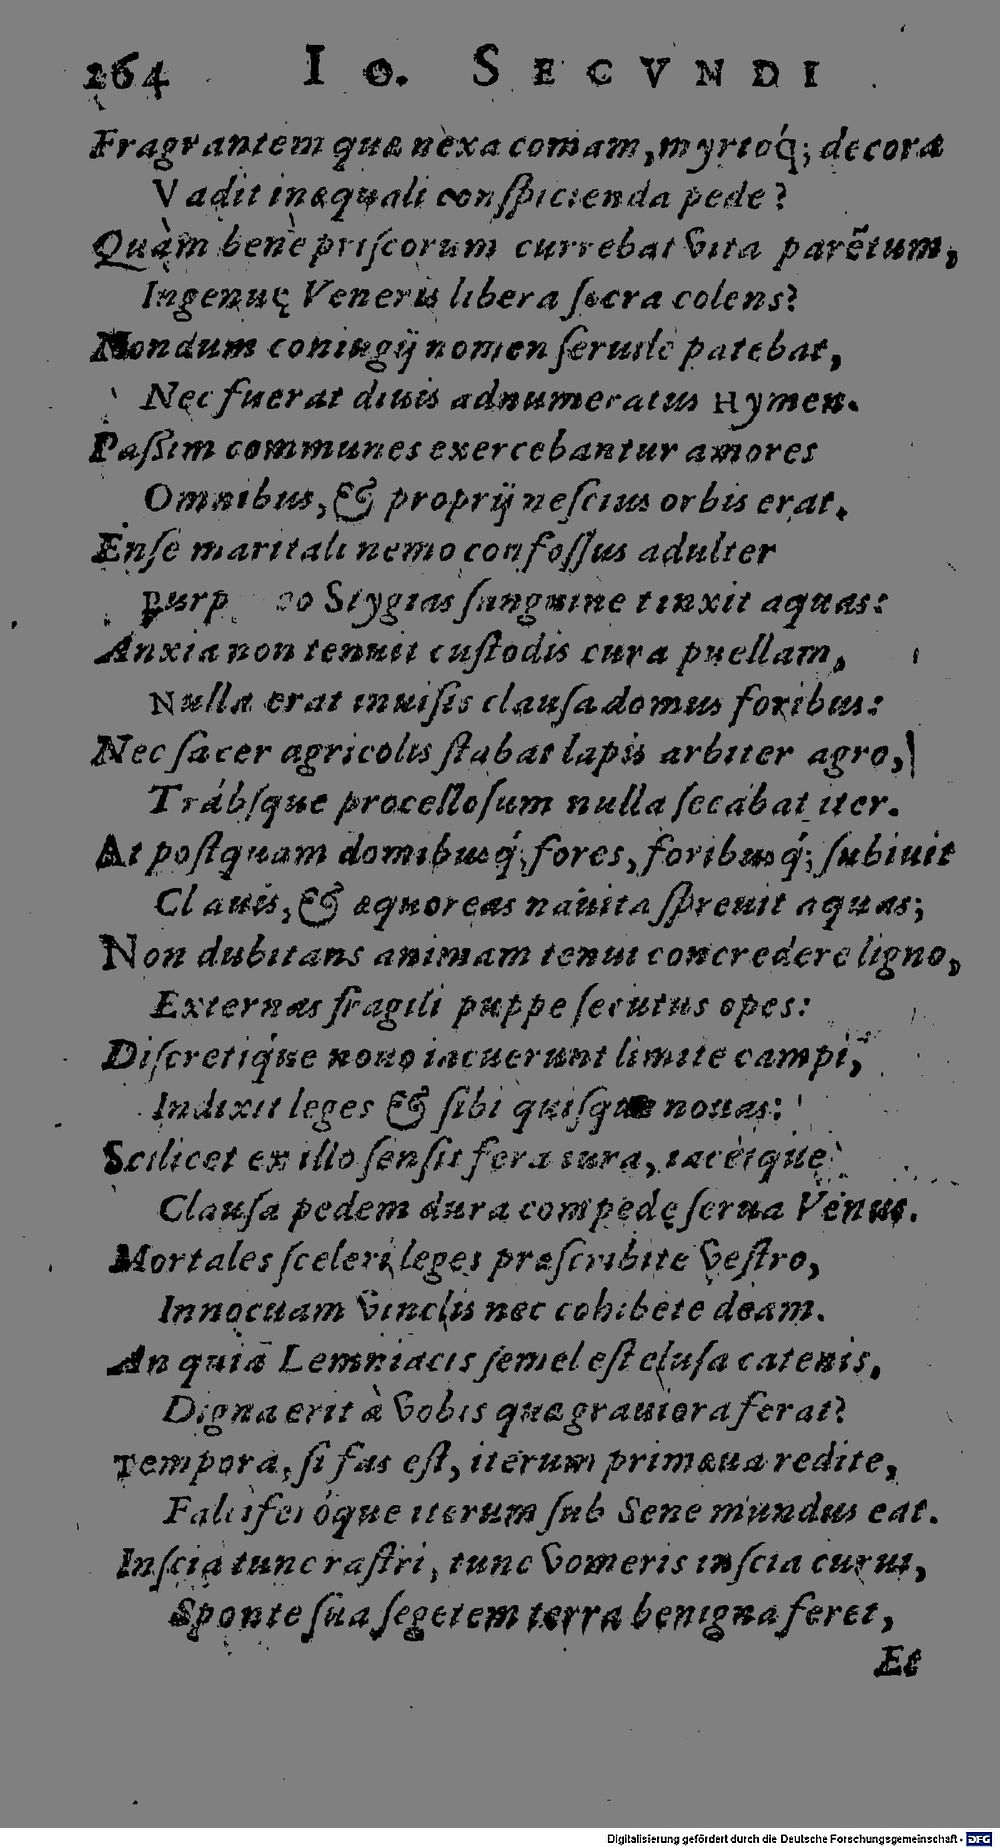 264 IO. SECVNDI
Fragrantem quæ nexa comam, myrtoq́; decora
Vadit inæquali conſpicienda pede?
Quàm benè priſcorum currebat vita parẽtum,
Ingenuę Veneris libera ſacra colens?
Nondum coniugij nomen ſeruile patebat,
Nec fuerat diuis adnumeratus Hymen.
Paſſim communes exercebantur amores
Omnibus, & proprij neſcius orbis erat.
Enſe maritali nemo confoſſus adulter
Stygias ſanguine tinxit aquas:
Anxia non tenuit cuſtodis cura puellam,
Nulla erat inuiſis clauſa domus foribus:
Nec ſacer agricolis ſtabat lapis arbiter agro,
Trábſque procelloſum nulla ſecabat iter.
At poſtquam domibusq́; fores, foribusq́; ſubiuit
Clauis, & æquoreas nauita ſpreuit aquas;
Non dubitans animam tenui concredere ligno,
Externas fragili puppe ſecutus opes:
Diſcretiq́ue nouo iacuerunt limite campi,
Indixit leges & ſibi quiſque nouas:
Scilicet ex illo ſenſit fera iura, iacétque
Clauſa pedem dura compede ſerua Venus.
Mortales ſceleri leges præſcribite veſtro,
Innocuam vinclis nec cohibete deam.
An quia Lemniacis ſemel eſt eluſa catenis,
Digna erit à vobis quæ grauiora ferat?
Tempora, ſi fas eſt, iterum primæua redite,
Falciferóque iterum ſub Sene mundus eat.
Inſcia tunc raſtri, tunc vomeris inſcia curui,
Sponte ſua ſegetem terra benigna feret,
Et
Digitalisierung gefördert durch die Deutsche Forschungsgemeinschaft - DFG